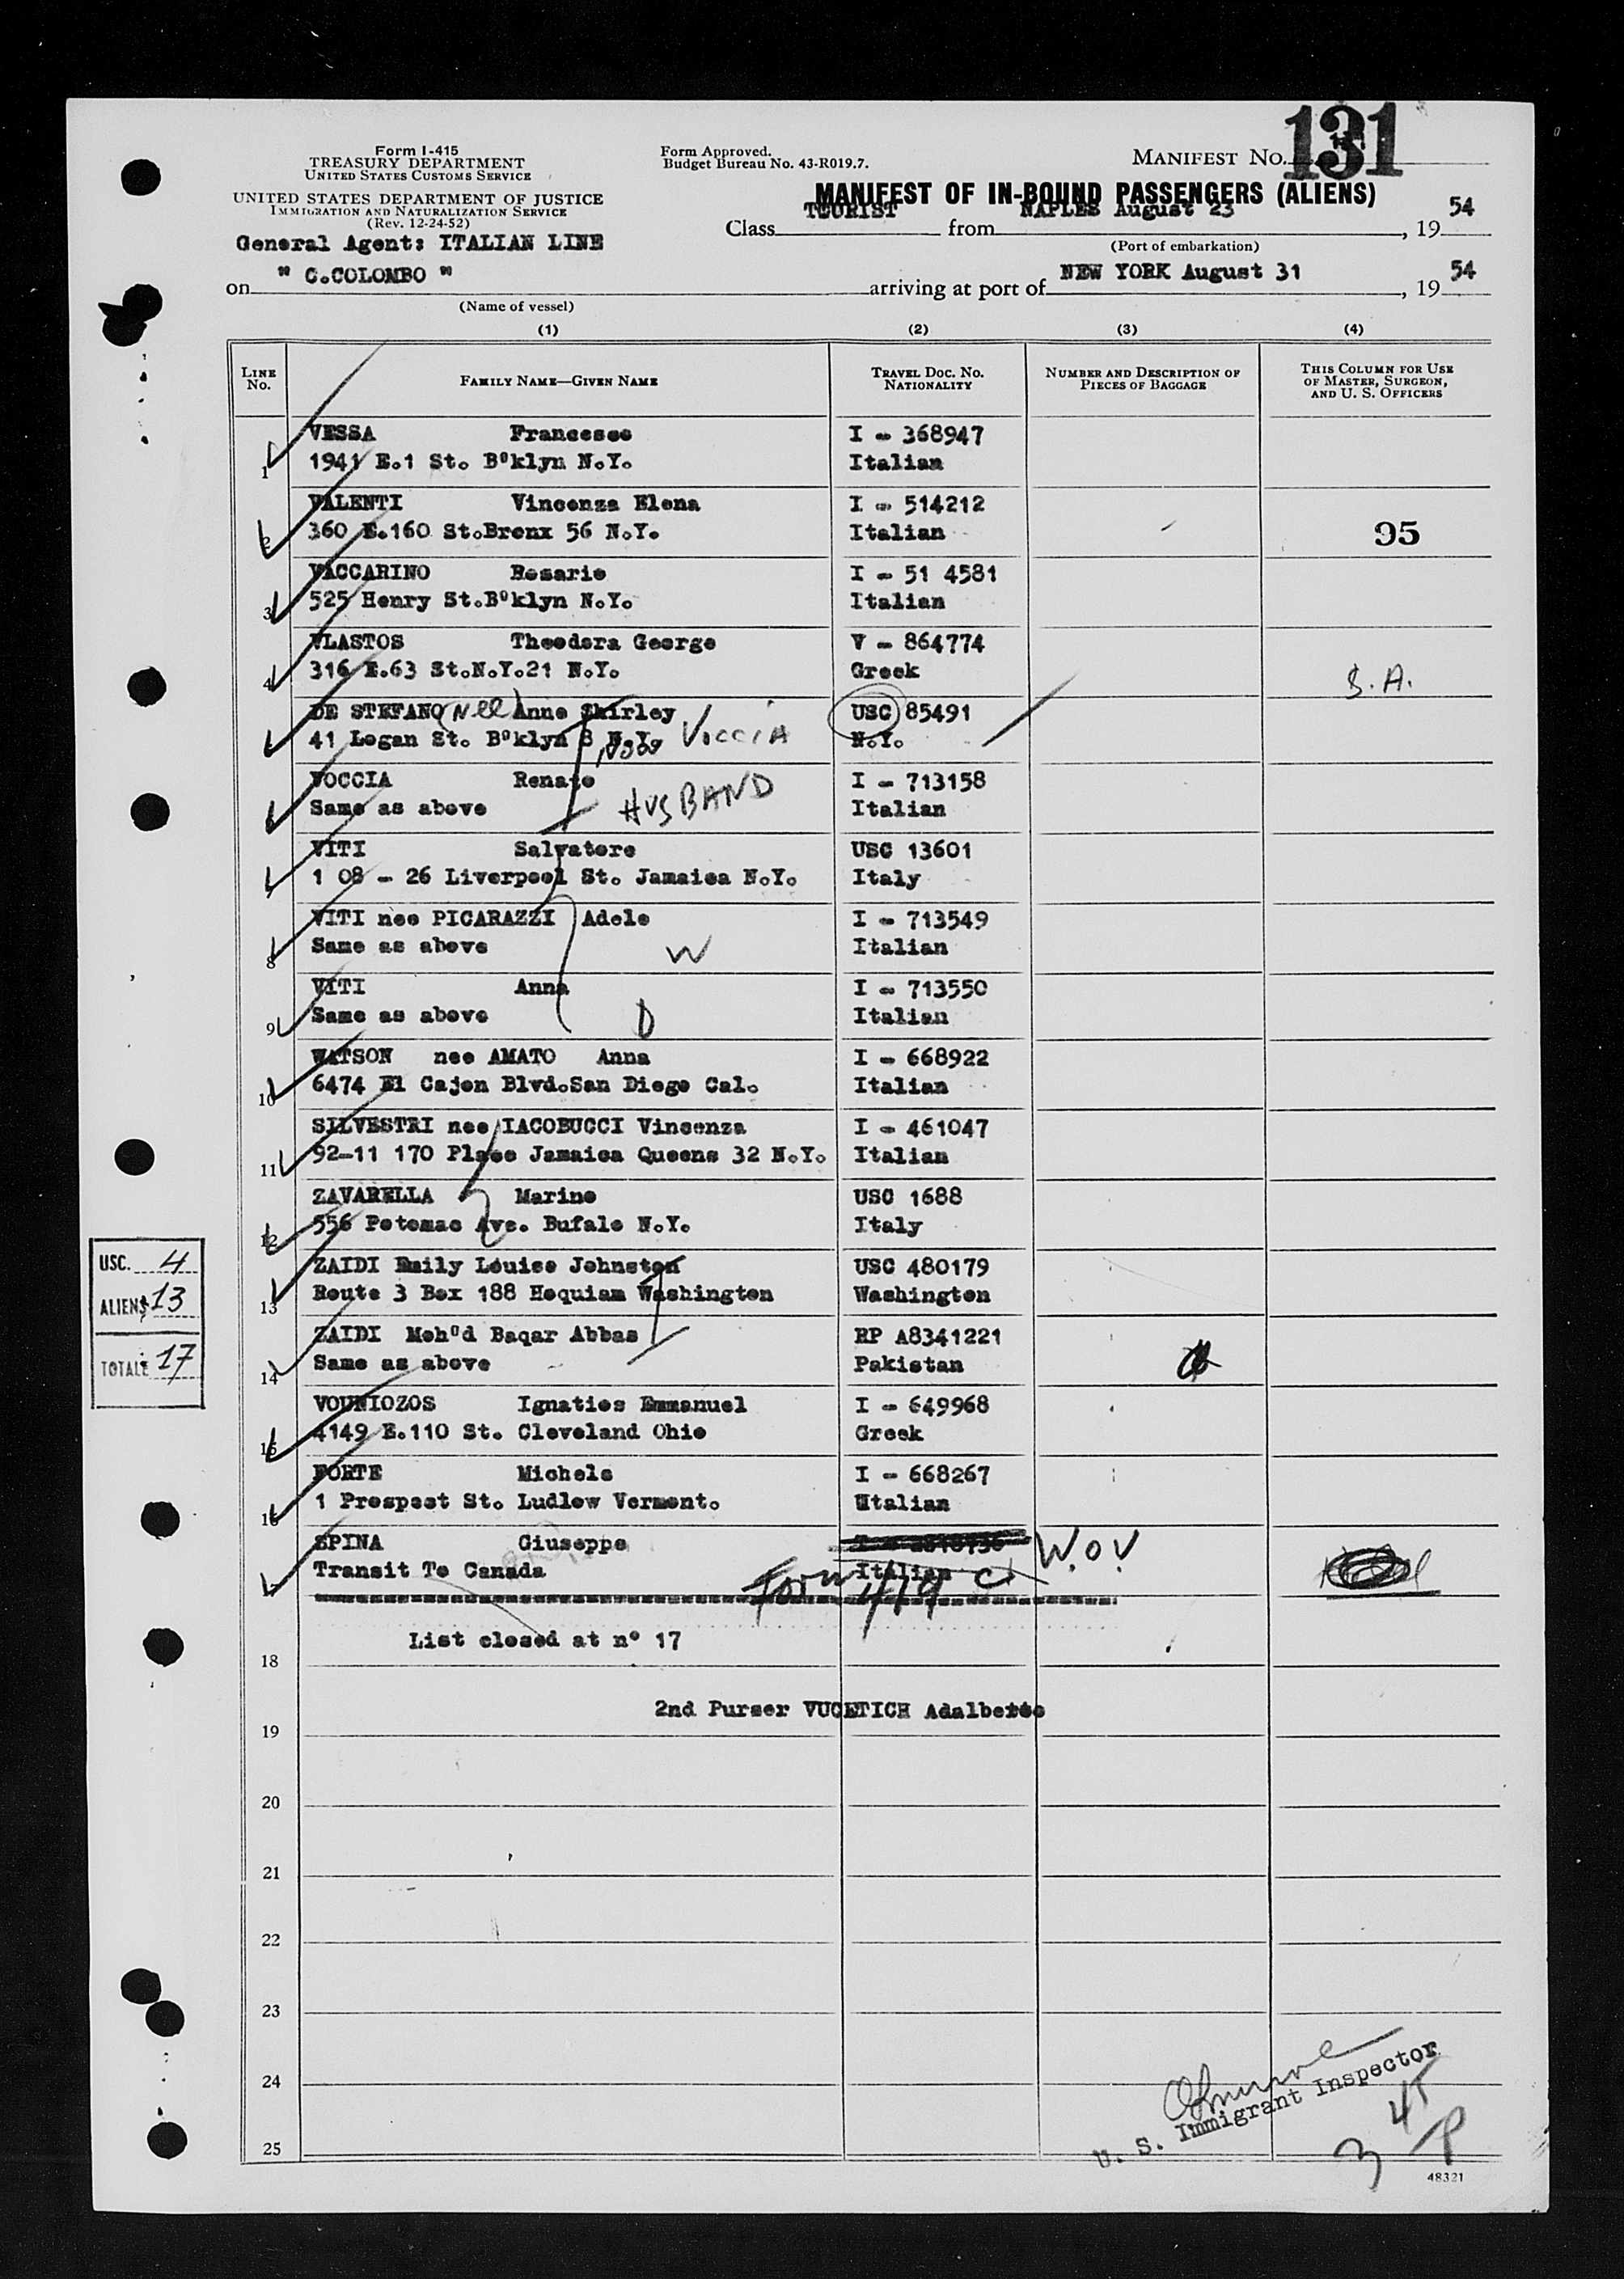 131
Form I-415
TREASURY DEPARTMENT
UNITED STATES CUSTOMS SERVICE
UNITED STATES DEPARTMENT OF JUSTICE
IMMIGRATION AND NATURALIZATION SERVICE
(Rev. 12-24-52)
Form Approved.
Budget Bureau No. 43-R019.7.
MANIFEST NO.
MANIFEST OF IN-BOUND PASSENGERS (ALIENS)
General Agent: ITALIAN LINE
Class TOURIST from NAPLES August 23, 19 54
(Port of embarkation)
on " C.COLOMBO " arriving at port of NEW YORK August 31, 19 54
(Name of vessel)
(1) (2) (3) (4)
LINE NO. FAMILY NAME—GIVEN NAME TRAVEL DOC. NO. NATIONALITY NUMBER AND DESCRIPTION OF PIECES OF BAGGAGE THIS COLUMN FOR USE OF MASTER, SURGEON, AND U. S. OFFICERS
VESSA Francesco I - 368947
1 1941 E.1 St. Bºklyn N.Y. Italian
VALENTI Vincenza Elena I - 514212
2 360 E.160 St.Bronx 56 N.Y. Italian 95
VACCARINO Rosario I - 51 4581
3 525 Henry St.Bºklyn N.Y. Italian
VLASTOS Theodora George V - 864774
4 316 E.63 St.N.Y.21 N.Y. Greek S.A.
DE STEFANO (Nee) Anne Shirley USC 85491
41 Logan St. Bºklyn 8 N.Y. Now VOCCIA N.Y.
VOCCIA Renato I - 713158
Same as above HUSBAND Italian
VITI Salvatore USC 13601
1 08 - 26 Liverpool St. Jamaica N.Y. Italy
VITI nee PICARAZZI Adele I - 713549
8 Same as above W Italian
VITI Anna I - 713550
9 Same as above D Italian
WATSON nee AMATO Anna I - 668922
10 6474 El Cajon Blvd.San Diego Cal. Italian
SILVESTRI nee IACOBUCCI Vincenza I - 461047
11 92-11 170 Place Jamaica Queens 32 N.Y. Italian
ZAVARELLA Marino USC 1688
12 556 Potomac Ave. Bufalo N.Y. Italy
ZAIDI Emily Louise Johnston USC 480179
13 Route 3 Box 188 Hoquiam Washington Washington
ZAIDI Mohºd Baqar Abbas RP A8341221
14 Same as above Pakistan
VOUNIOZOS Ignatios Emmanuel I - 649968
15 4149 E.110 St. Cleveland Ohio Greek
FORTE Michele I - 668267
16 1 Prospect St. Ludlow Vermont. Utalian
SPINA Giuseppe W.O.V.
Transit To Canada Italian
Form 419
List closed at nº 17
18
2nd Purser VUCETICH Adalberto
19
20
21
22
23
24
25
USC. 4
ALIENS 13
TOTALE 17
U. S. Immigrant Inspector
45
3 P
48321